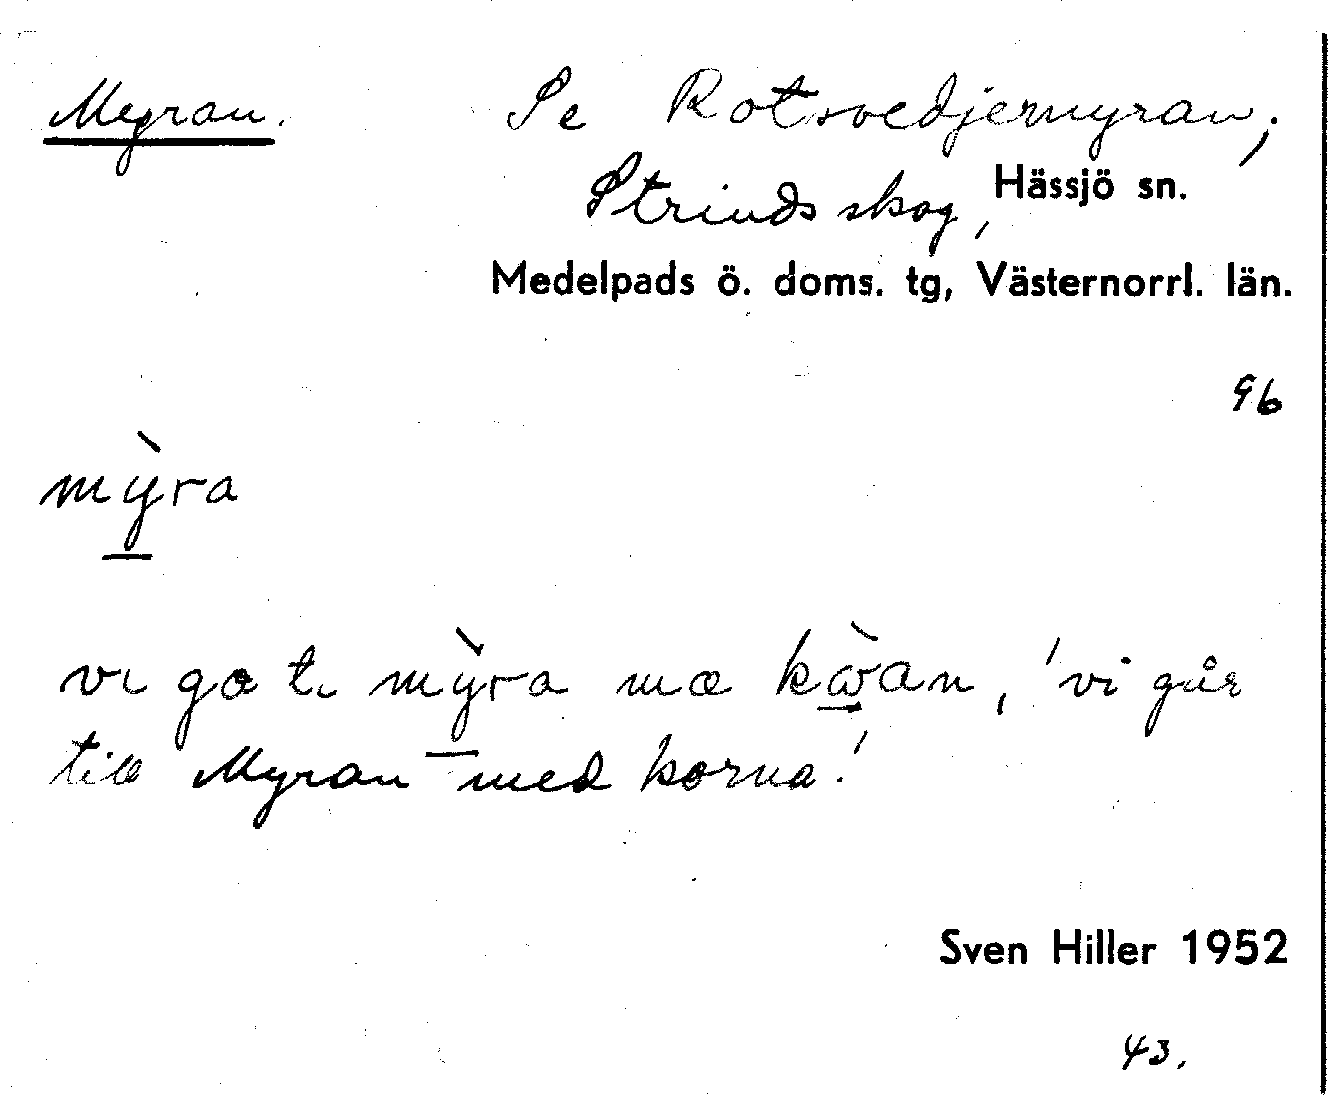 Myran. Se Rotsvedjemyran;
Strinds skog, Hässjö sn.
Medelpads ö. doms. tg, Västernorrl. län.
96
mỳra
vi gɷ tɩ mỳra mæ kɷ̀an, 'vi går
till Myran med korna.'
Sven Hiller 1952
43.